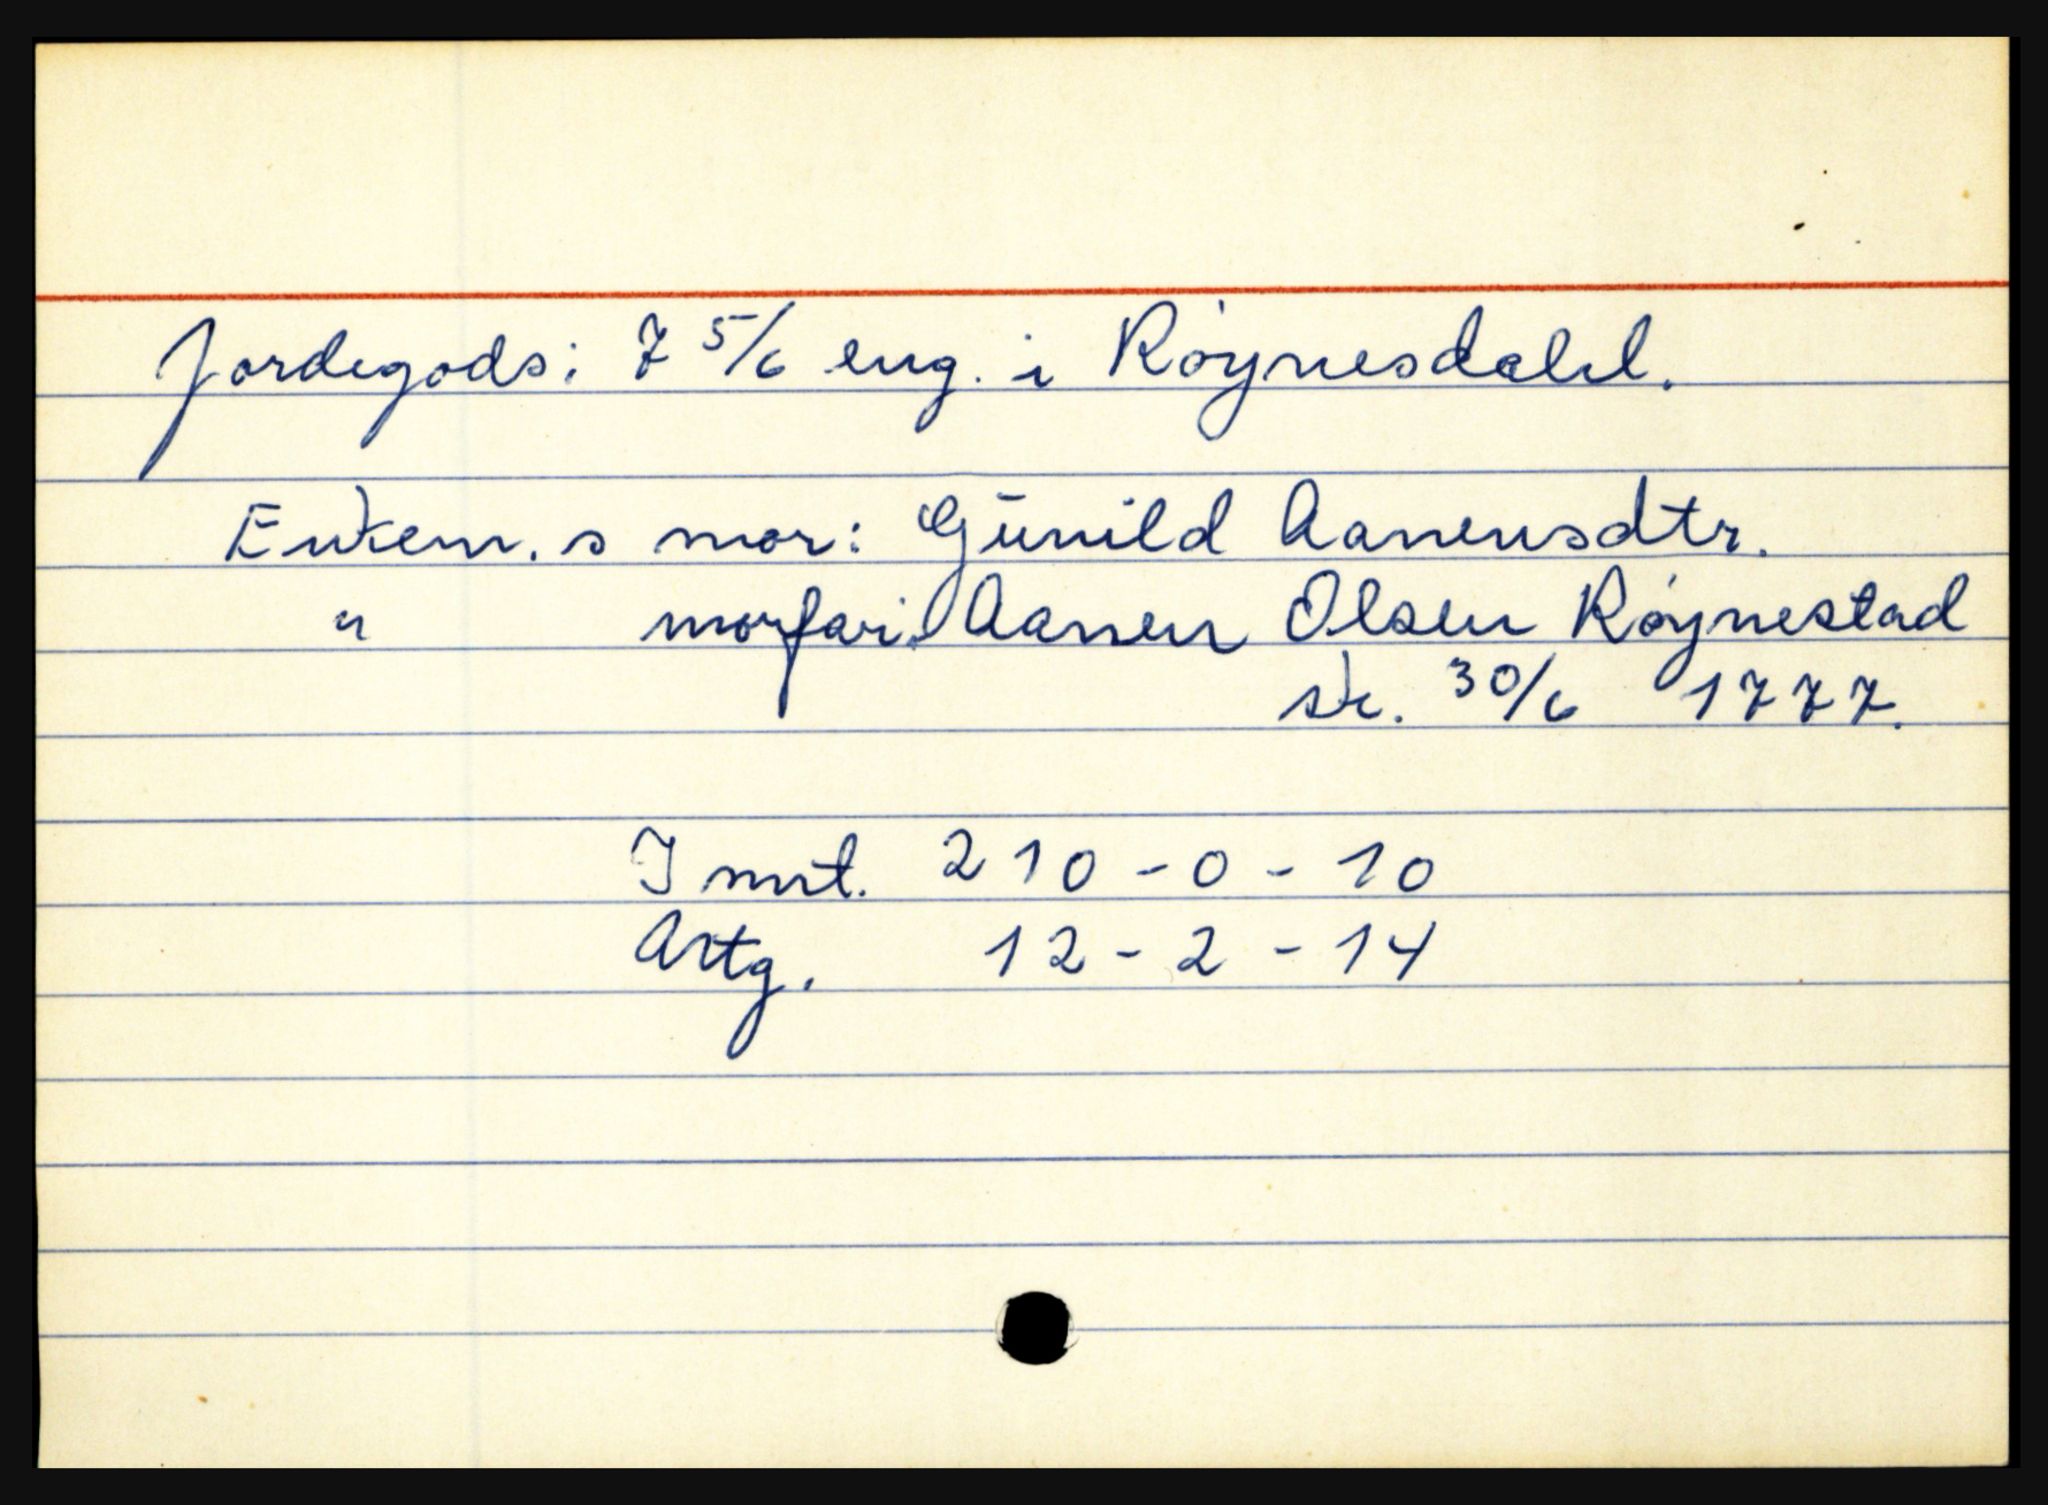 Jordegods: 7 5/6 eng. i Røynesdahl.
Enkem. s mor: Gunild Aanensdtr.
" morfar: Aanen Olsen Røynestad
sk. 30/6 1777.
Innt. 210 - 0 - 10
Artg. 12 - 2 - 14